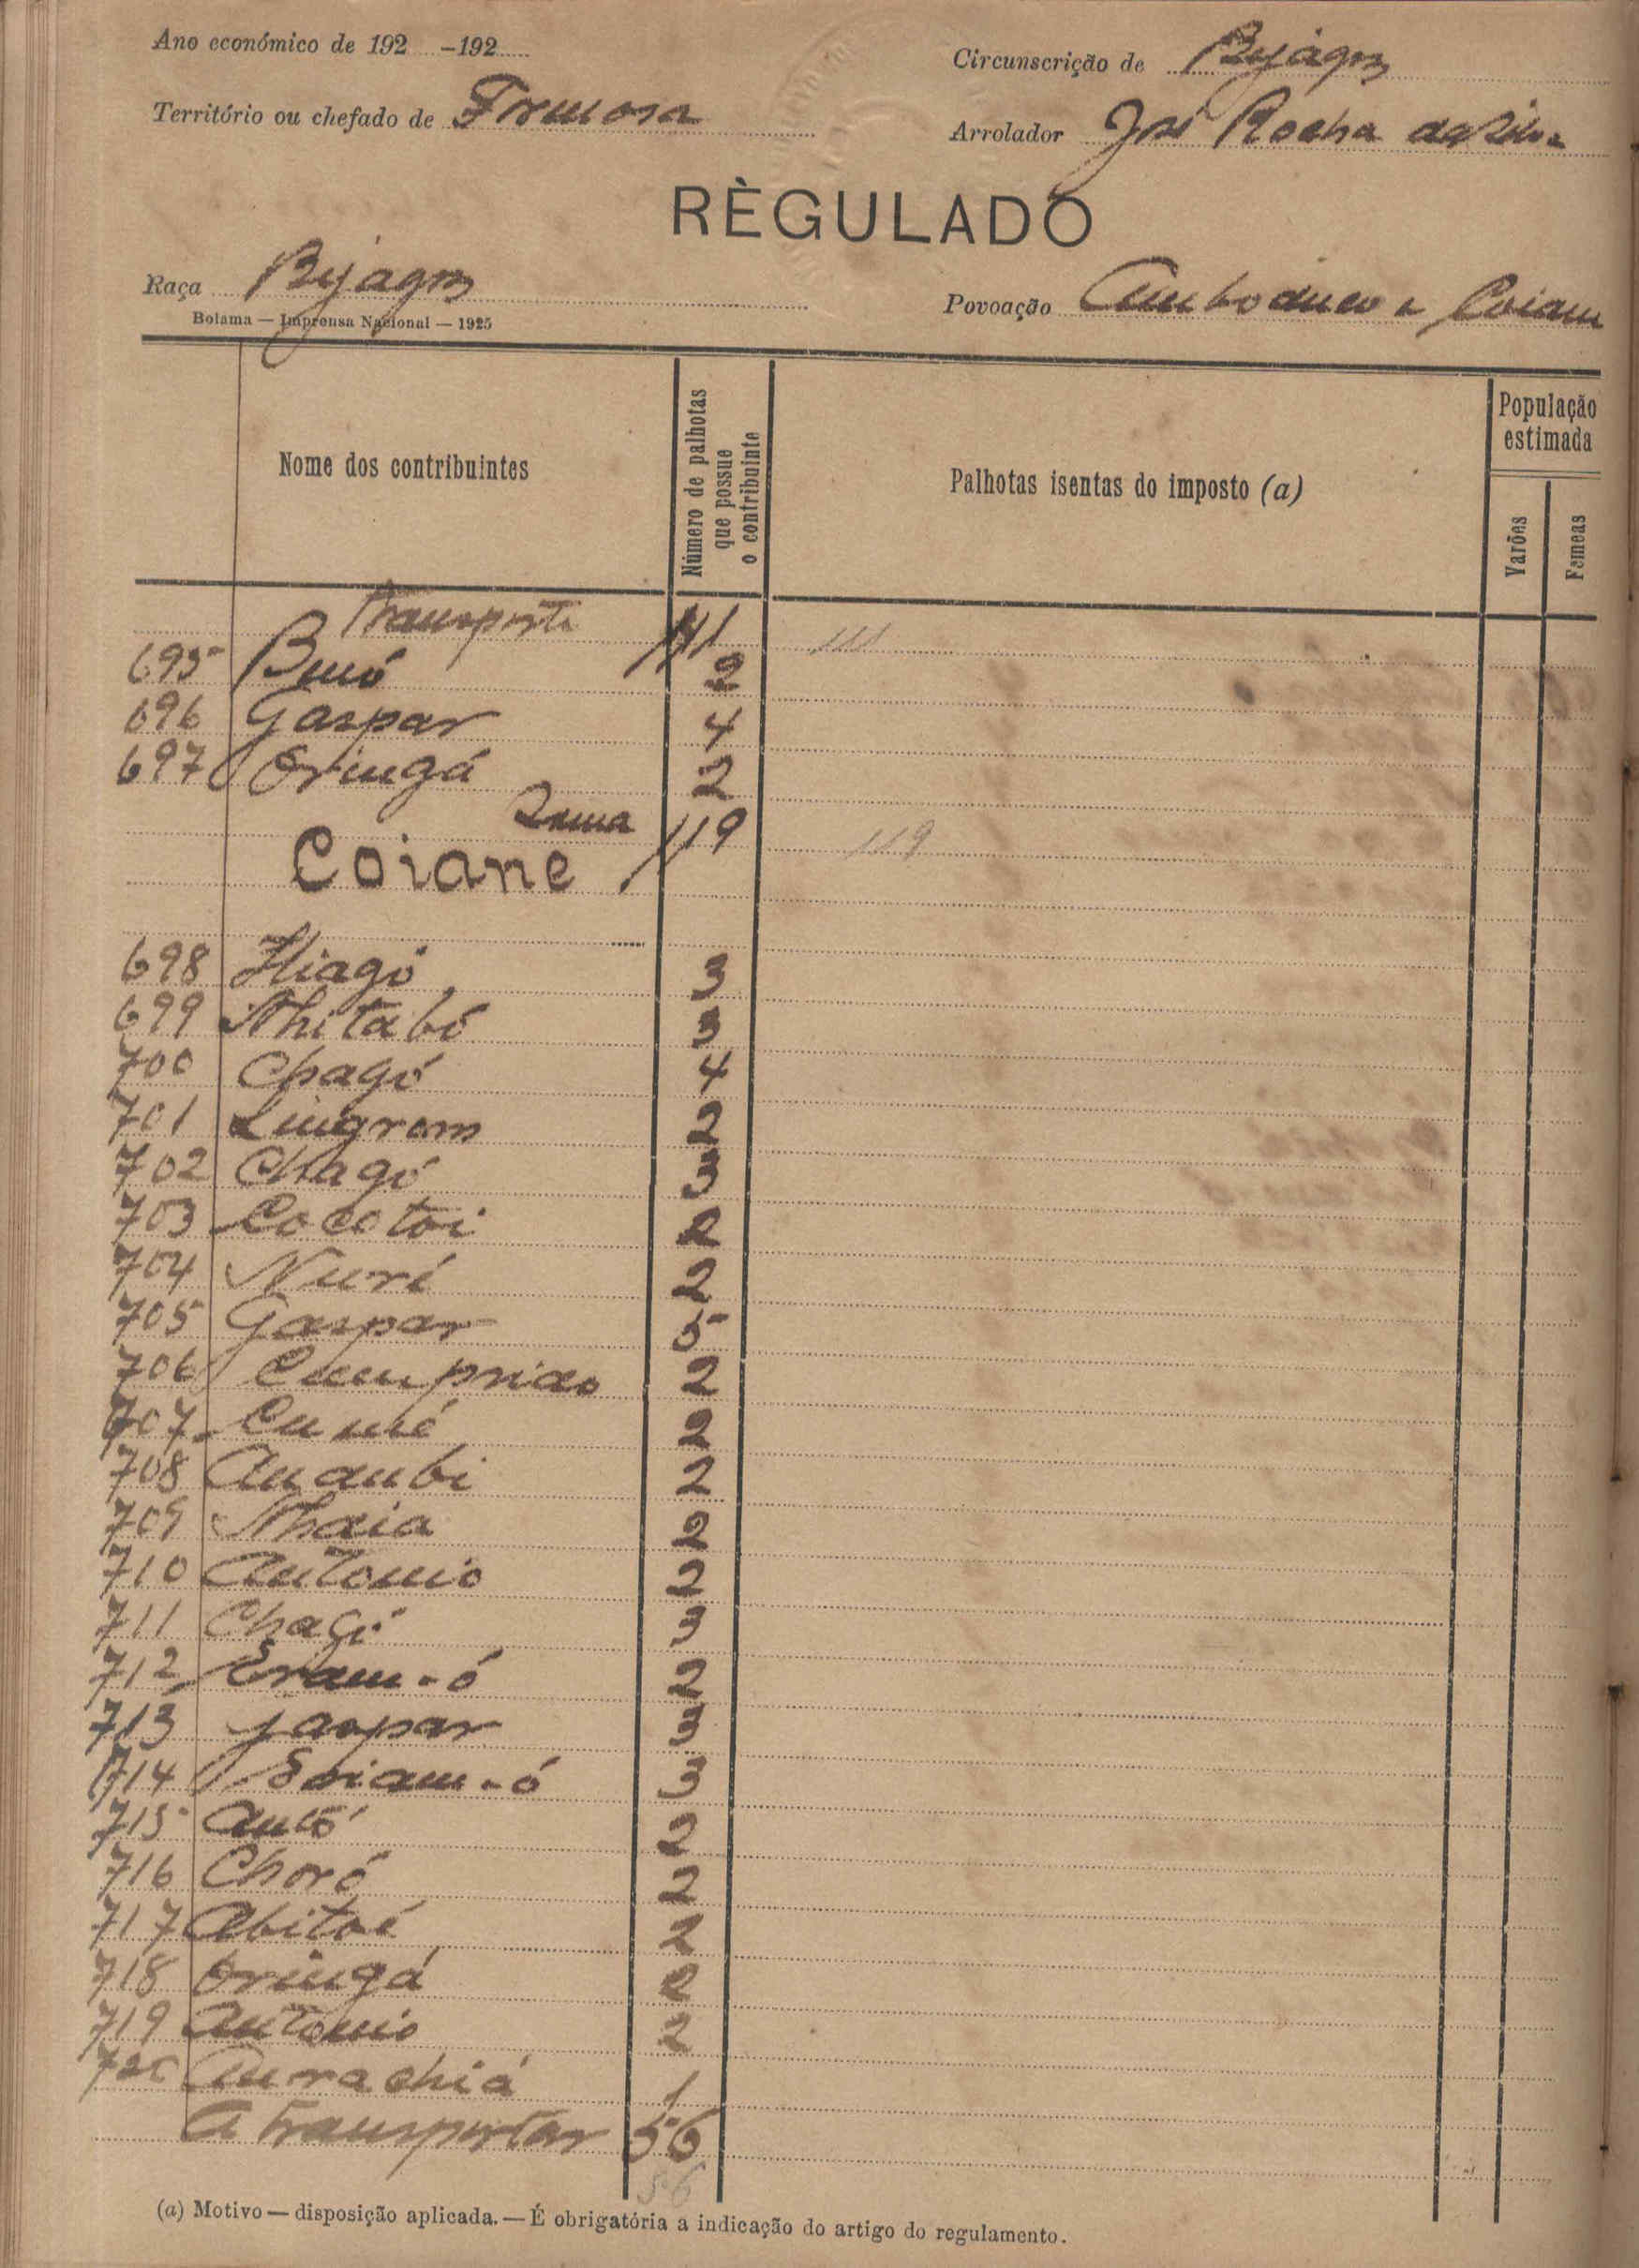 Ano económico de 192 -192
Circunscrição de Byjágos
Território ou chefado de Formosa
Arrolador José Rocha da Silva
RÈGULADO
Raça Byjágos
Povoação e Coiane
Bolama — Imprensa Nacional — 1925
Nome dos contribuintes
Número de palhotas que possue o contribuinte
Palhotas isentas do imposto (a)
População estimada
Varões
Femeas
Transporte 111 111
695 2
696 Gaspar 4
697 Oringá 2
Soma 119 119
Coiane
698 3
699 Nhitabó 3
700 Chagó 4
701 Lingrom 2
702 Chagó 3
703 Cocotoi 2
704 Nuri 2
705 Gaspar 5
706 2
707 2
708 2
709 Nhaia 2
710 Antonio 2
711 3
712 2
713 Gaspar 3
714 3
715 2
716 Choró 2
717 Abitoé 2
718 Oringá 2
719 Antonio 2
720 1
A transportar 56
56
(a) Motivo — disposição aplicada. — É obrigatória a indicação do artigo do regulamento.